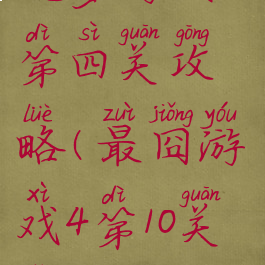 dì sì guān gōng
第四关攻
lüè zuì jiǒng yóu
略(最囧游
xì dì guān
戏4第10关